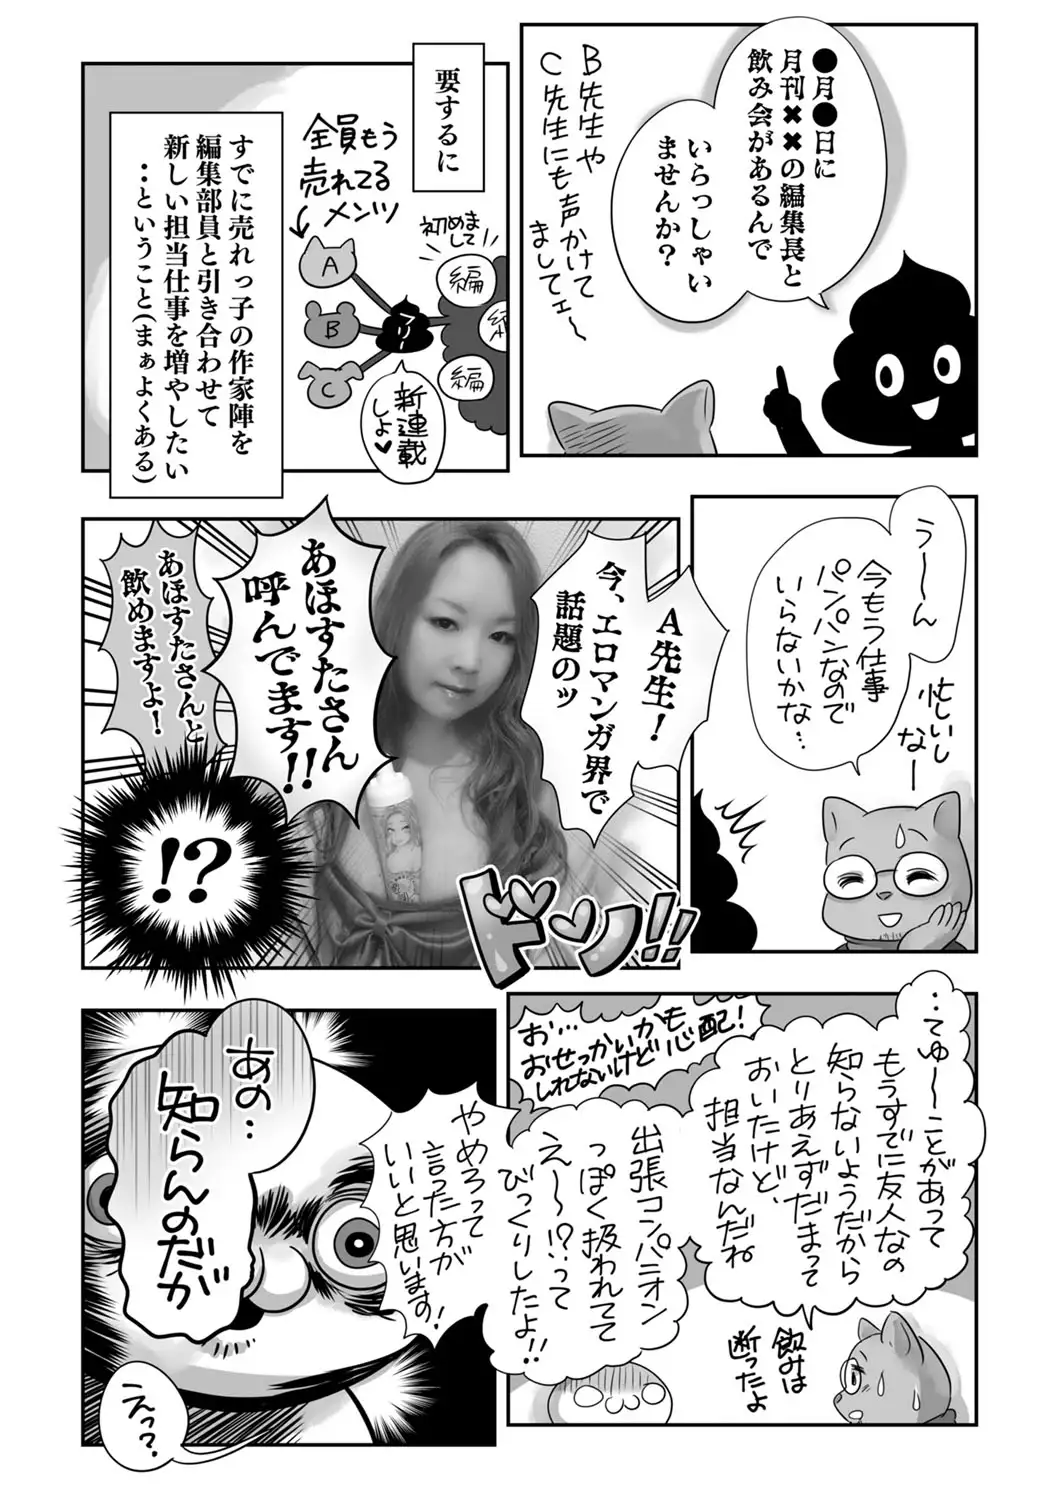 ●月●日に
月刊✖✖の編集長と
飲み会があるんで
いらっしゃい
ませんか?
B先生や
C先生にも声かけて
ましてェ〜
要するに
全員もう
売れてる
メンツ
初めまして
A
B
C
編
編
編
新連載
しよ♥
すでに売れっ子の作家陣を
編集部員と引き合わせて
新しい担当仕事を増やしたい
‥ということ(まぁよくある)
う〜〜ん
今もう仕事
パンパンなので
いらないかな‥
忙しいし
なー
A先生!
今、エロマンガ界で
話題のッ
あほすたさん
呼んでます!!
あほすたさんと
飲めますよ!
ドン!!
!?
‥てゆ〜ことがあって
もうすでに友人なの
知らないようだから
とりあえずだまって
おいたけど、
担当なんだね
飲みは
断ったよ
お…
おせっかいかも
しれないけど心配!
出張コンパニオン
っぽく扱われてて
え〜〜!?って
びっくりしたよ!!
やめろって
言った方が
いいと思います!
あの‥
知らんのだが
えっ?